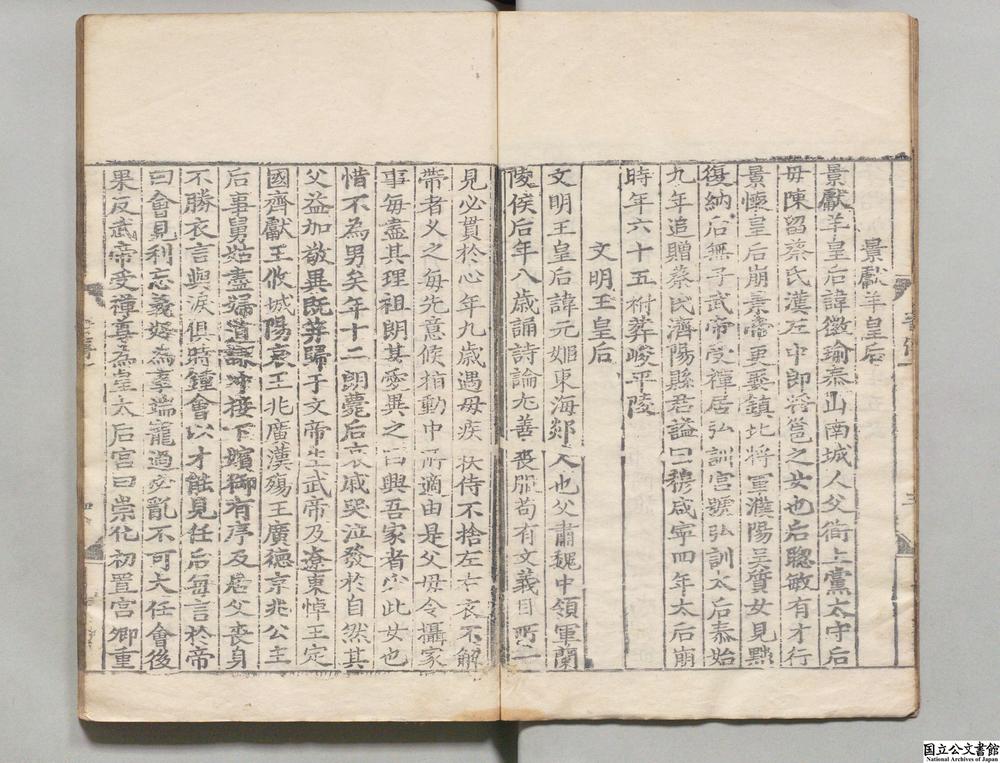 景獻羊皇后
景獻羊皇后諱徽瑜泰山南城人父衜上黨太守后
母陳留蔡氏漢左中郎將邕之女也后聰敏有才行
景懷皇后崩景帝更娶鎮北將軍濮陽吳質女見黜
復納后無子武帝受禪居弘訓宮號弘訓太后泰始
九年追贈蔡氏濟陽縣君謚曰穆咸寧四年太后崩
時年六十五祔葬峻平陵
文明王皇后
文明王皇后諱元姬東海郯人也父肅魏中領軍蘭
陵侯后年八歲誦詩論尤善喪服苟有文義目所一
見必貫於心年九歲遇母疾扶侍不捨左右衣不解
帶者久之每先意候指動中所適由是父母令攝家
事每盡其理祖朗甚愛異之曰興吾家者必此女也
惜不為男矣年十二朗薨后哀戚哭泣發於自然其
父益加敬異既笄歸于文帝生武帝及遼東悼王定
國齊獻王攸城陽哀王兆廣漢殤王廣德京兆公主
后事舅姑盡婦道謙冲接下嬪御有序及居父喪身
不勝衣言與淚俱時鍾會以才能見任后每言於帝
曰會見利忘義好為事端寵過必亂不可大任會後
果反武帝受禪尊為皇太后宮曰崇化初置宮卿重
国立公文書館
National Archives of Japan